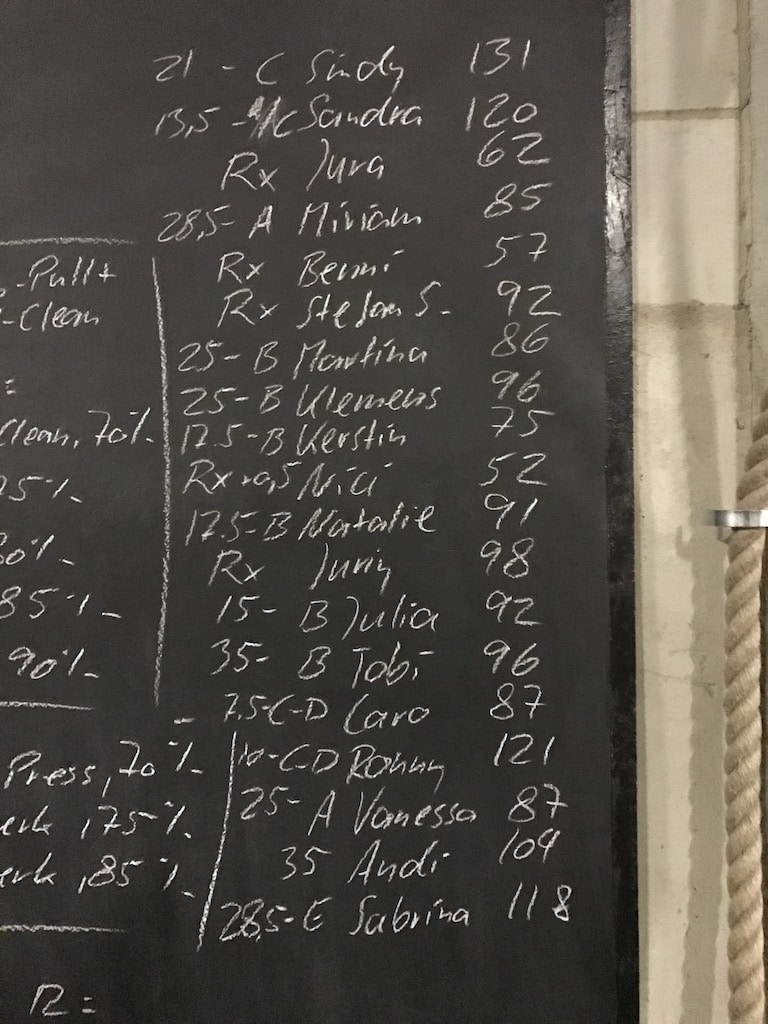 21 - C Sindy 131
13,5 - C Sandra 120
Rx Jura 62
28,5 - A Miriam 85
Rx Berni 57
Rx Stefan S. 92
25 - B Martina 86
25 - B Klemens 96
17.5 - B Kerstin 75
Rx +0,5 Nici 52
17.5 - B Natalie 91
Rx Juriy 98
15 - B Julia 92
35 - B Tobi 96
7,5 - C-D Caro 87
10 - C-D Ronny 121
25 - A Vanessa 87
35 Andi 109
28,5 - E Sabrina 118
-Pull+
-Clean
=
Clean, 70%
75%
80%
85%
90%
Press, 70%
erk, 75%
erk, 85%
R =